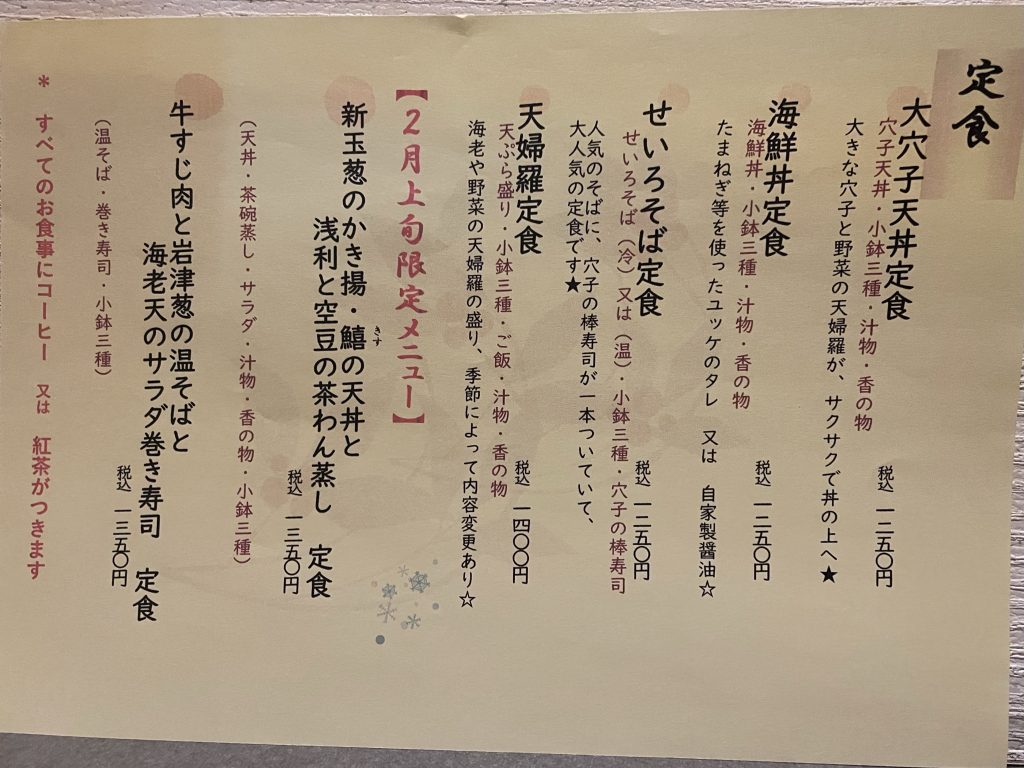 定食
大穴子天丼定食
穴子天丼・小鉢三種・汁物・香の物
税込 一二五〇円
大きな穴子と野菜の天婦羅が、サクサクで丼の上へ★
海鮮丼定食
海鮮丼・小鉢三種・汁物・香の物
税込 一二五〇円
たまねぎ等を使ったユッケのタレ 又は 自家製醤油☆
せいろそば定食
せいろそば（冷）又は（温）・小鉢三種・穴子の棒寿司
税込 一二五〇円
人気のそばに、穴子の棒寿司が一本ついていて、
大人気の定食です★
天婦羅定食
天ぷら盛り・小鉢三種・ご飯・汁物・香の物
税込 一四〇〇円
海老や野菜の天婦羅の盛り、季節によって内容変更あり☆
【2月上旬限定メニュー】
新玉葱のかき揚・鱚の天丼と
きす
浅利と空豆の茶わん蒸し 定食
税込 一三五〇円
（天丼・茶碗蒸し・サラダ・汁物・香の物・小鉢三種）
牛すじ肉と岩津葱の温そばと
海老天のサラダ巻き寿司 定食
税込 一三五〇円
（温そば・巻き寿司・小鉢三種）
* すべてのお食事にコーヒー 又は 紅茶がつきます